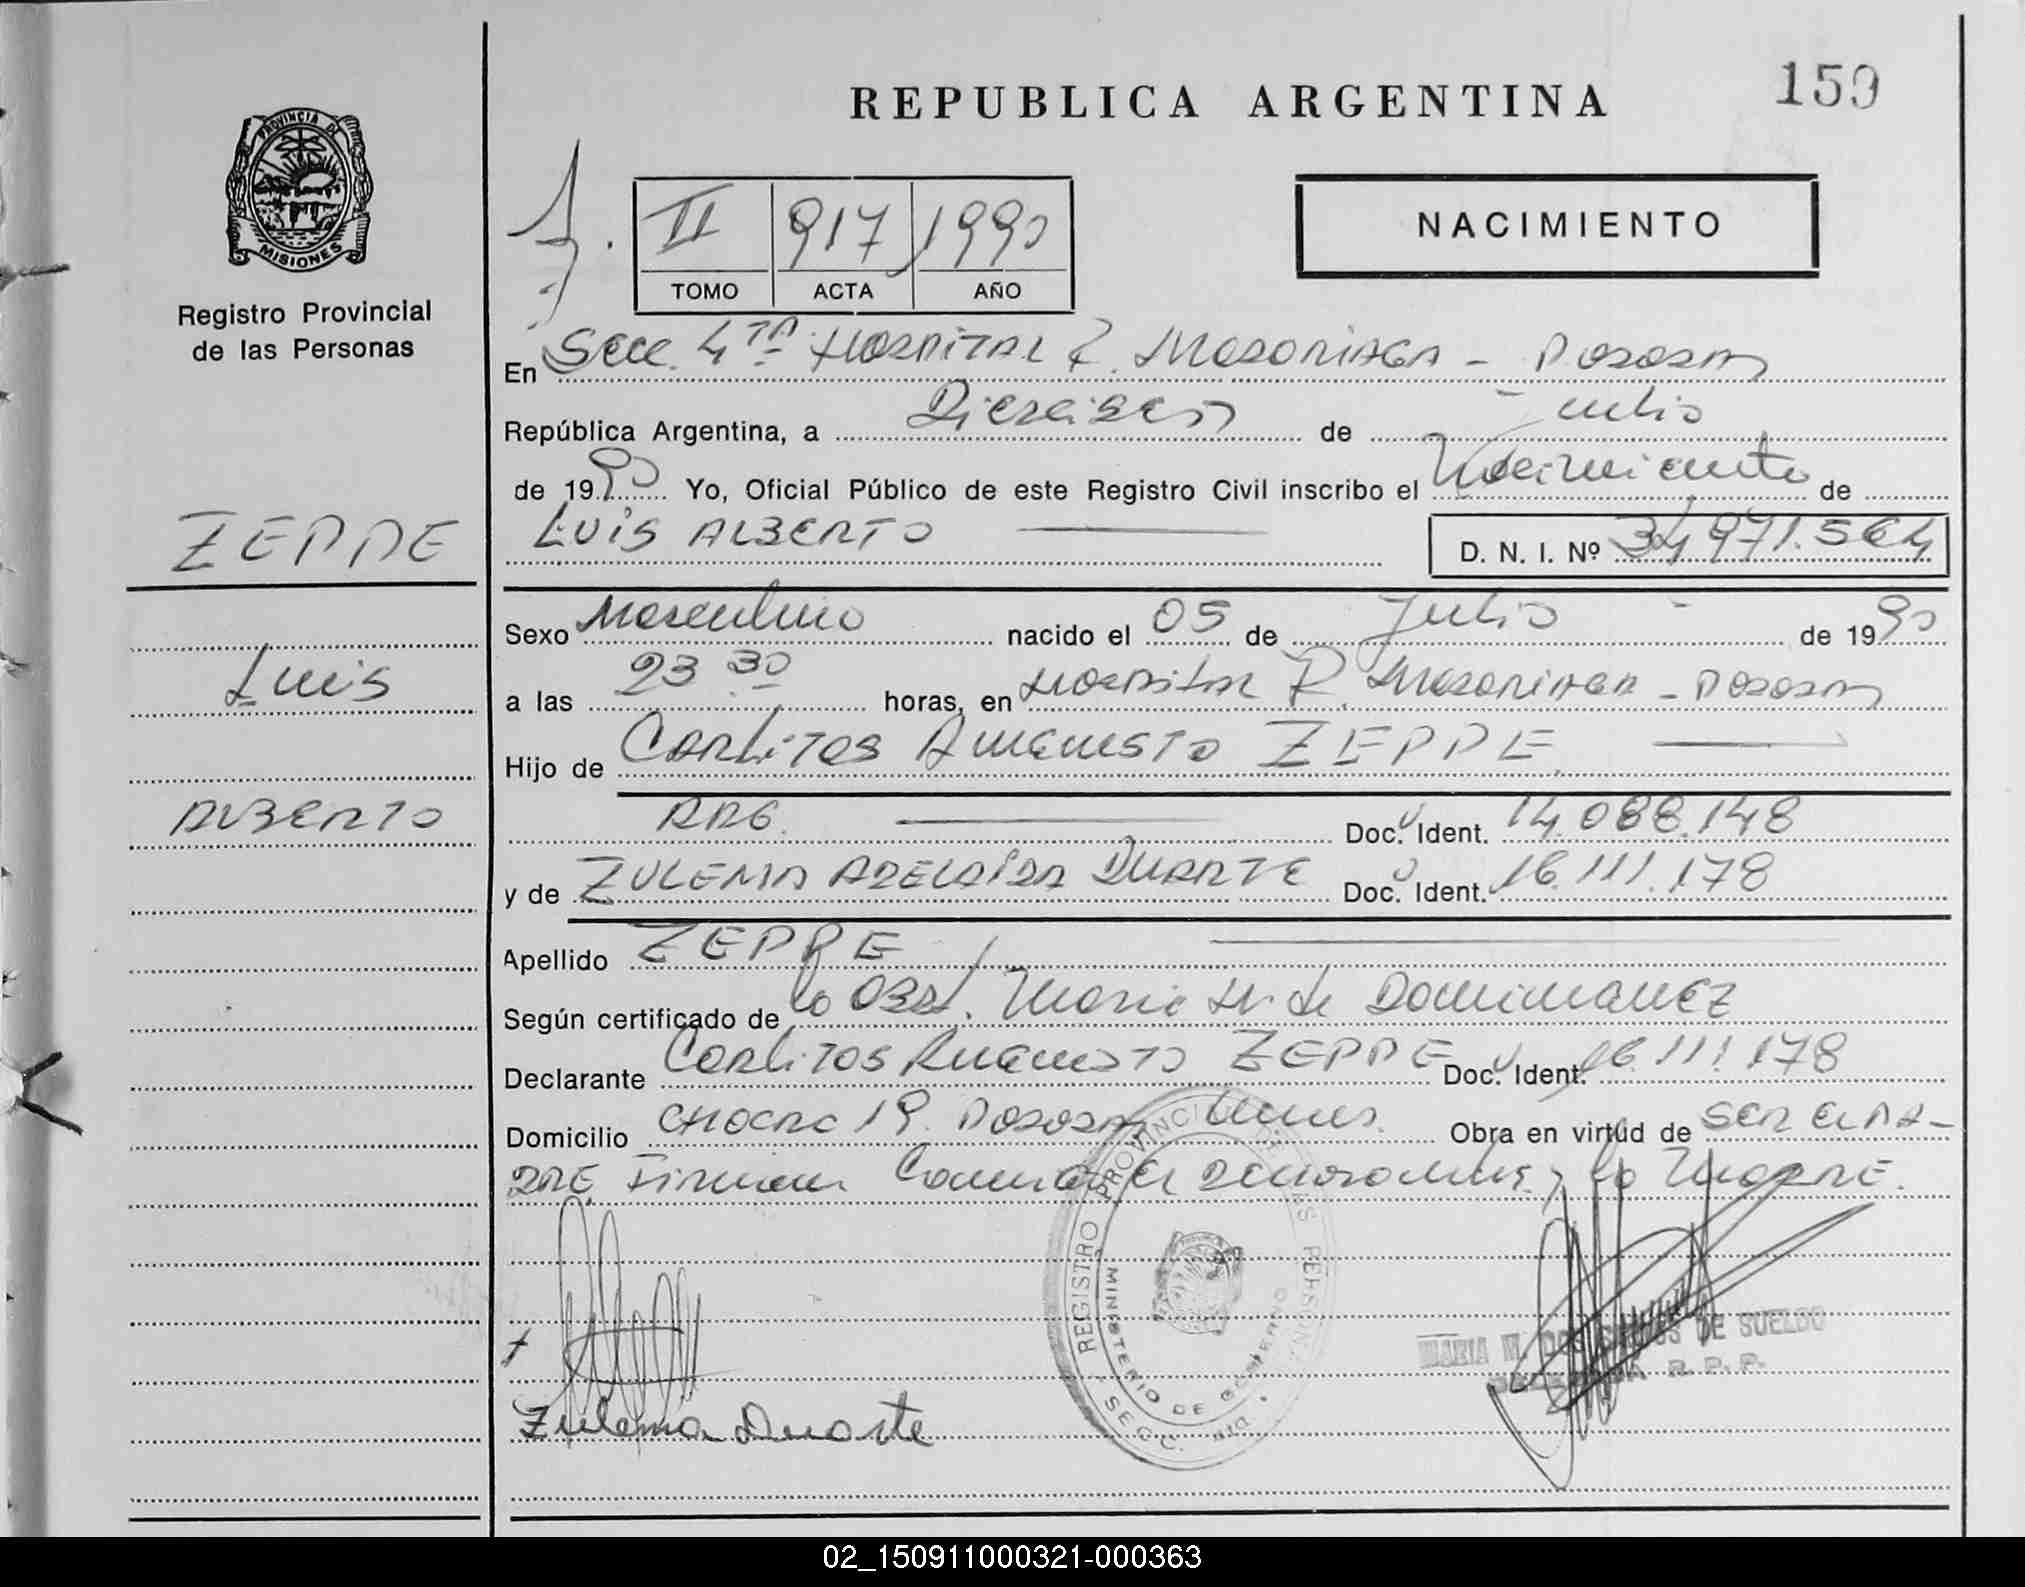 REPUBLICA ARGENTINA
159
PROVINCIA DE
MISIONES
Registro Provincial
de las Personas
II 917 1990
TOMO ACTA AÑO
NACIMIENTO
En Secc. 4TA Hospital R. Madariaga - Posadas
República Argentina, a Dieciseis de Julio
de 1990 Yo, Oficial Público de este Registro Civil inscribo el Nacimiento de
LUIS ALBERTO
D. N. I. Nº 34,971.564
ZEPPE
Luis
ALBERTO
Sexo Masculino nacido el 05 de Julio de 1990
a las 23 30 horas, en Hospital R. Madariaga - Posadas
Hijo de Carlitos Augusto ZEPPE
ARG. Doc. Ident. 14.088.148
y de ZULEMA ADELAIDA DUARTE Doc. Ident. 16.111.178
Apellido ZEPPE
Según certificado de la Obst. Maria H. de Dominguez
Declarante Carlitos Augusto ZEPPE Doc. Ident. 16.111.178
Domicilio CHACRA 19. Posadas Mnes. Obra en virtud de SER EL PA-
DRE. Firman el y la Madre.
REGISTRO PROVINCIAL DE LAS PERSONAS
MINISTERIO DE GOBIERNO
SECC.
MARIA DOS SANTOS DE SUELDO
R. P. P.
Zulema Duarte
02_150911000321-000363